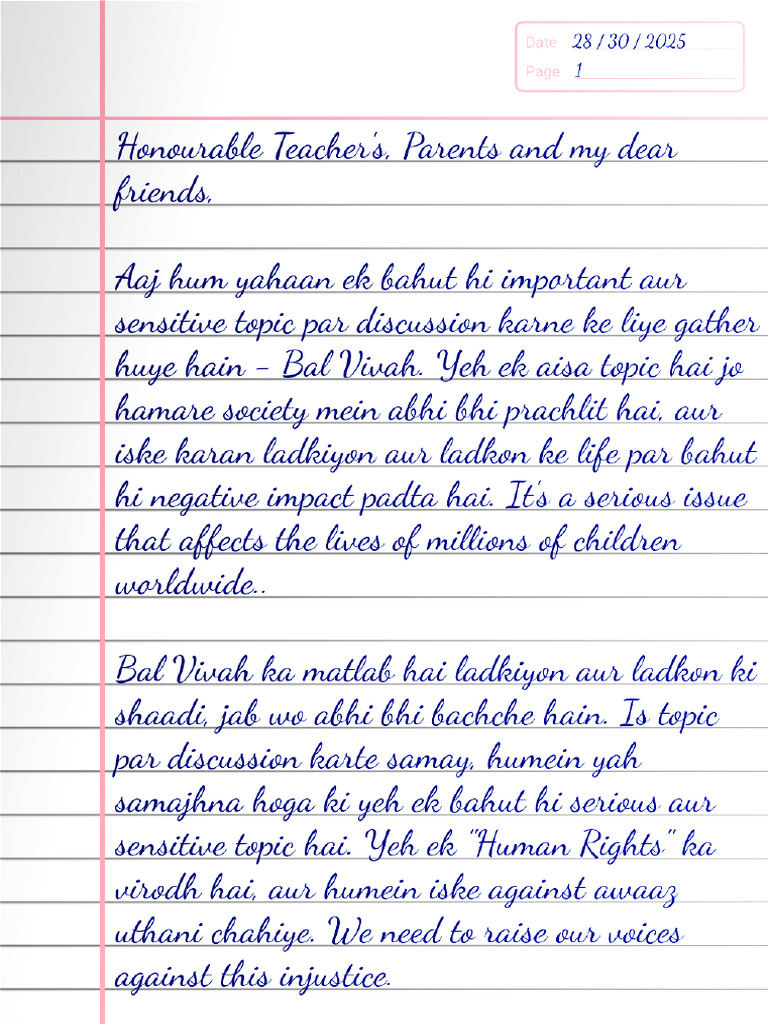 Date 28 / 30 / 2025
Page 1
Honourable Teacher's, Parents and my dear
friends,
Aaj hum yahaan ek bahut hi important aur
sensitive topic par discussion karne ke liye gather
huye hain - Bal Vivah. Yeh ek aisa topic hai jo
hamare society mein abhi bhi prachlit hai, aur
iske karan ladkiyon aur ladkon ke life par bahut
hi negative impact padta hai. It's a serious issue
that affects the lives of millions of children
worldwide..
Bal Vivah ka matlab hai ladkiyon aur ladkon ki
shaadi, jab wo abhi bhi bachche hain. Is topic
par discussion karte samay, humein yah
samajhna hoga ki yeh ek bahut hi serious aur
sensitive topic hai. Yeh ek "Human Rights" ka
virodh hai, aur humein iske against awaaz
uthani chahiye. We need to raise our voices
against this injustice.